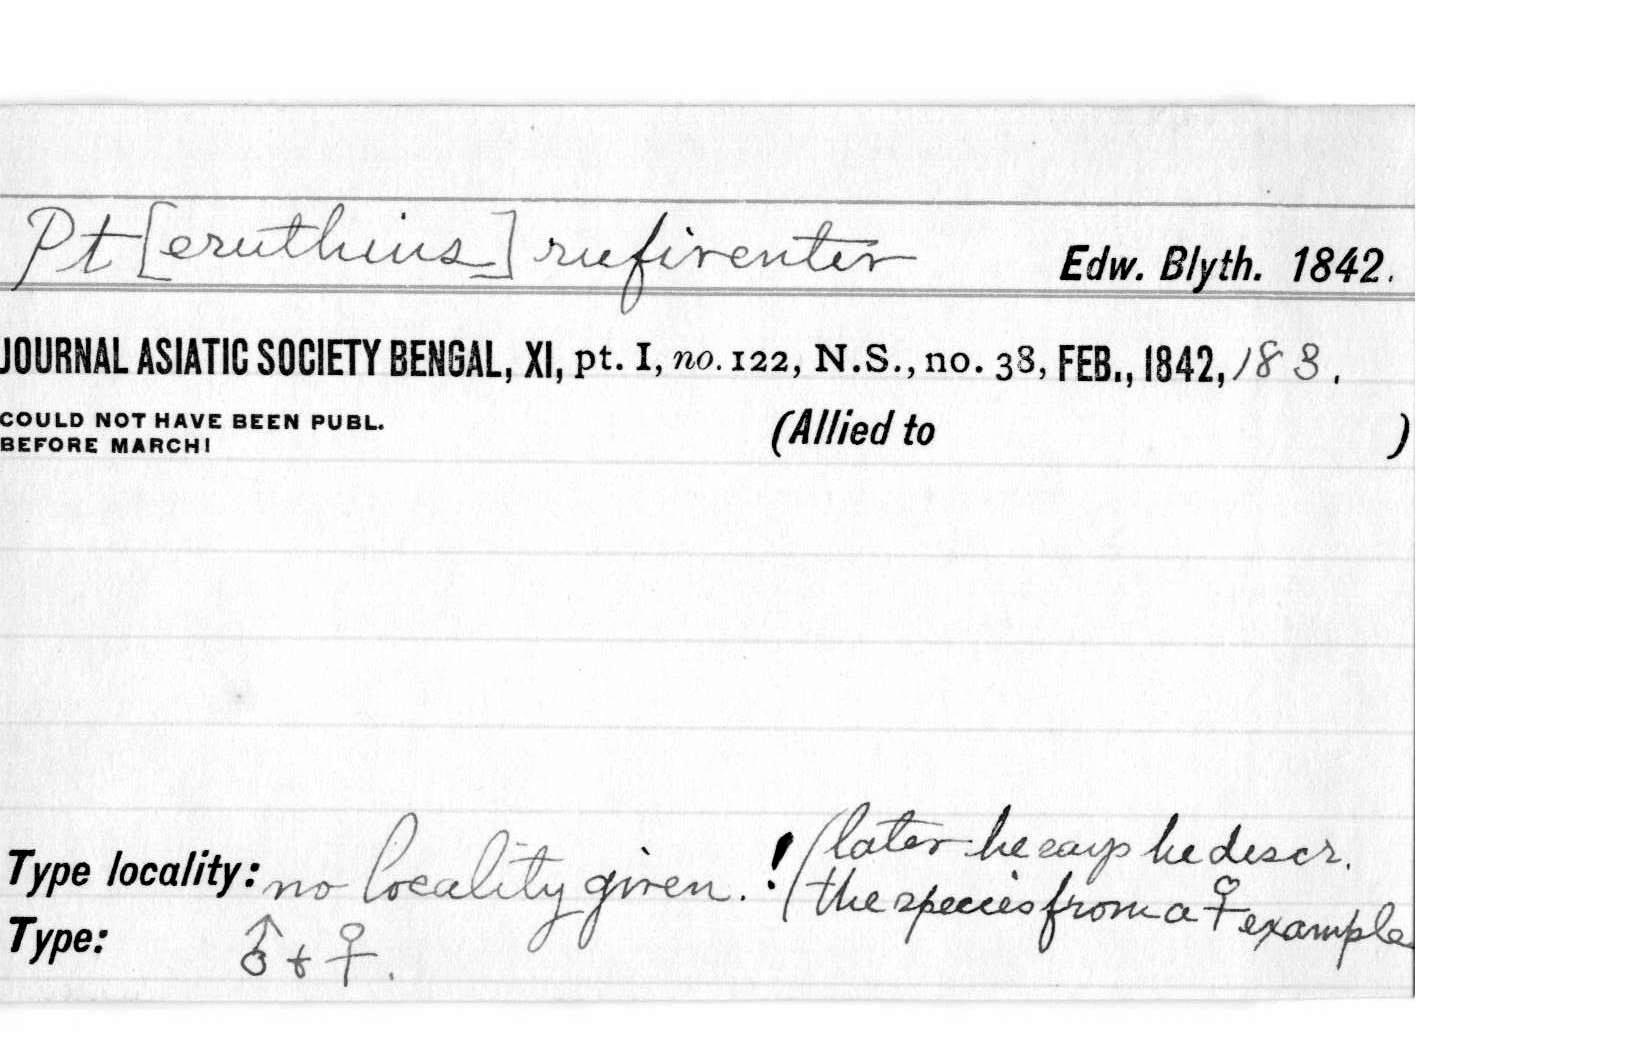 Pt[eruthius] rufiventer Edw. Blyth. 1842.
JOURNAL ASIATIC SOCIETY BENGAL, XI, pt. I, no. 122, N.S., no. 38, FEB., 1842, 183.
COULD NOT HAVE BEEN PUBL.
BEFORE MARCH!
(Allied to )
Type locality: no locality given. ! (later he says he descr.
the species from a ♀ example
Type: ♂ + ♀.